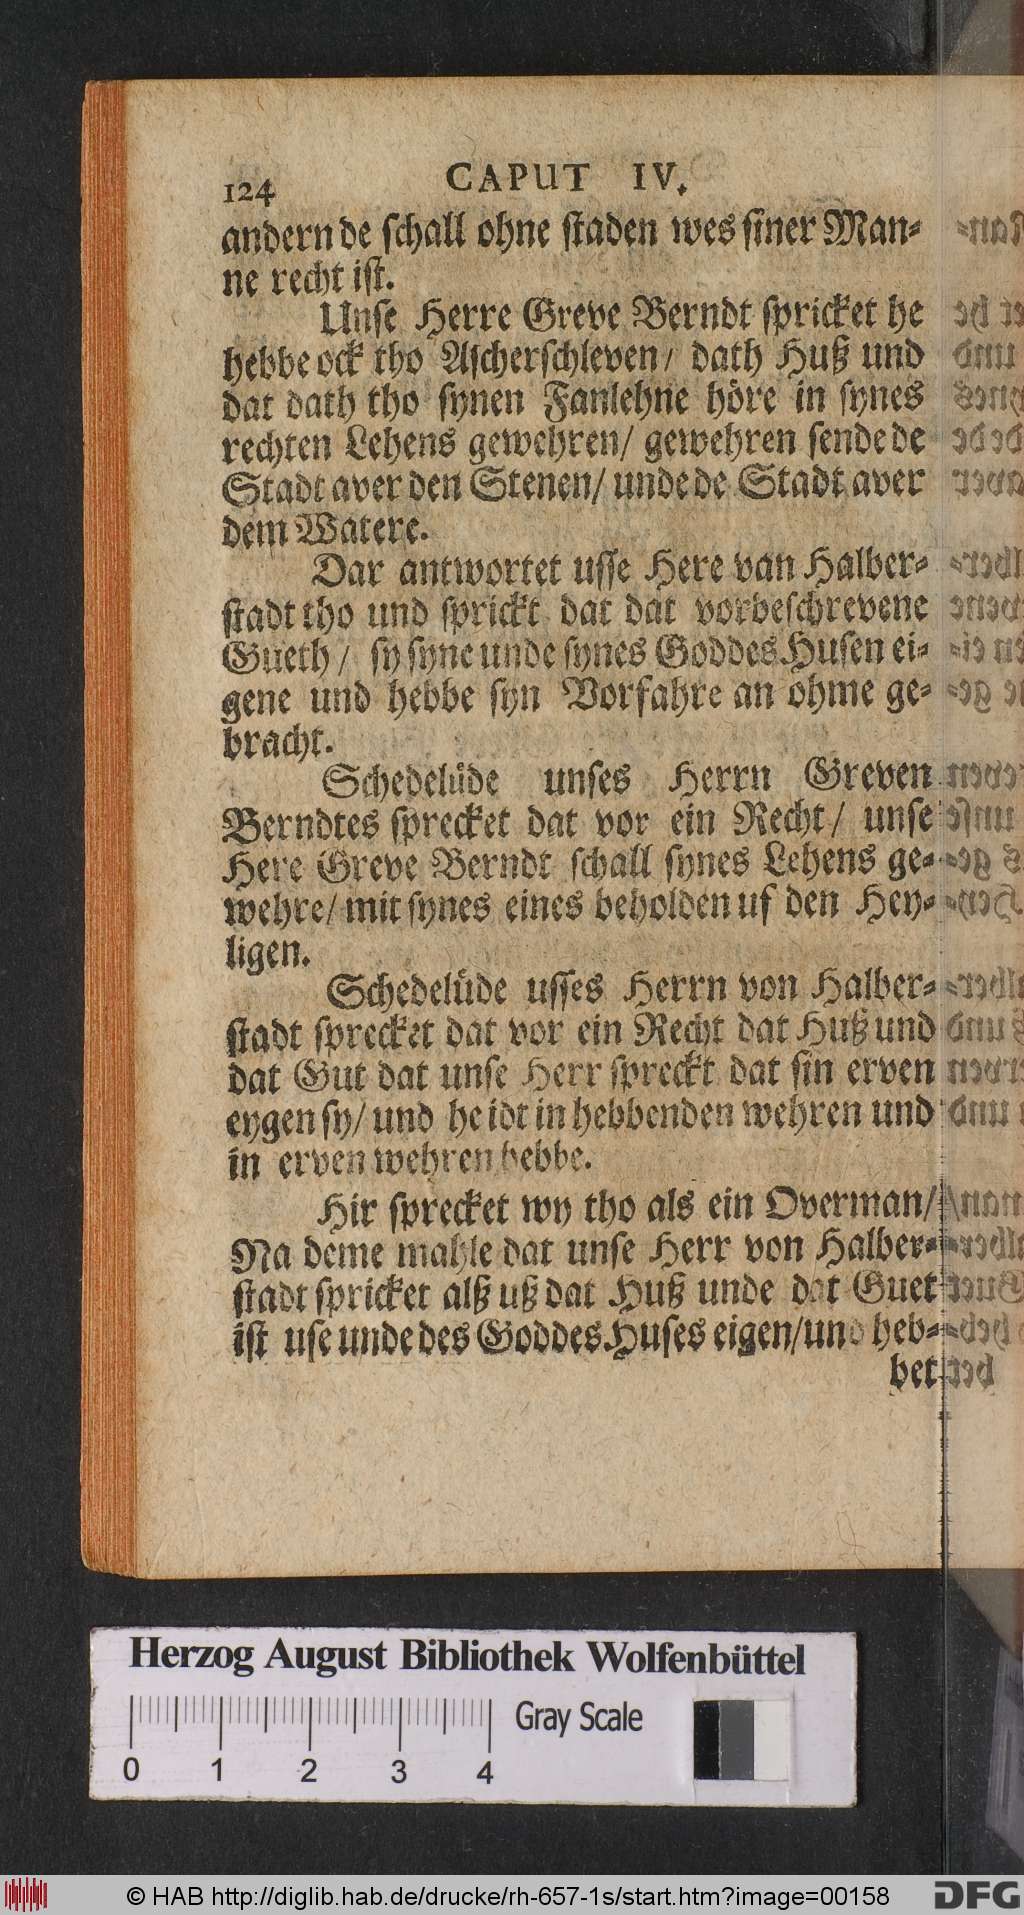 124 CAPUT IV.
andern de schall ohne staden wes siner Man-
ne recht ist.
Unse Herre Greve Berndt spricket he
hebbe ock tho Ascherschleven/ dath Huß und
dat dath tho synen Fanlehne höre in synes
rechten Lehens gewehren/ gewehren sende de
Stadt aver den Stenen/ unde de Stadt aver
dem Watere.
Dar antwortet usse Here van Halber-
stadt tho und sprickt dat dat vorbeschrevene
Gueth/ sy syne unde synes Goddes Husen ei-
gene und hebbe syn Vorfahre an ohme ge-
bracht.
Schedelüde unses Herrn Greven
Berndtes sprecket dat vor ein Recht/ unse
Here Greve Berndt schall synes Lehens ge-
wehre/ mit synes eines beholden uf den Hey-
ligen.
Schedelüde usses Herrn von Halber-
stadt sprecket dat vor ein Recht dat Huß und
dat Gut dat unse Herr spreckt dat sin erven
eygen sy/ und he idt in hebbenden wehren und
in erven wehren hebbe.
Hir sprecket wy tho als ein Overman/
Na deme mahle dat unse Herr von Halber-
stadt spricket alß uß dat Huß unde dat Guet
ist use unde des Goddes Huses eigen/ und heb-
bet
Herzog August Bibliothek Wolfenbüttel
Gray Scale
0 1 2 3 4
© HAB http://diglib.hab.de/drucke/rh-657-1s/start.htm?image=00158
DFG